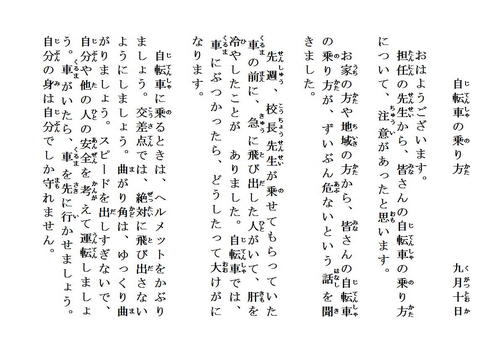 自転車の乗り方　九月十日
おはようございます。
担任の先生から、皆さんの自転車の乗り方
について、注意があったと思います。
お家の方や地域の方から、皆さんの自転車
の乗り方が、ずいぶん危ないという話を聞
きました。
先週、校長先生が乗せてもらっていた
車の前に、急に飛び出した人がいて、肝を
冷やしたことが ありました。自転車では、
車にぶつかったら、どうしたって大けがに
なります。
自転車に乗るときは、ヘルメットをかぶり
ましょう。交差点では、絶対に飛び出さない
ようにしましょう。曲がり角は、ゆっくり曲
がりましょう。スピードを出しすぎないで、
自分や他の人の安全を考えて運転しましょ
う。車がいたら、車を先に行かせましょう。
自分の身は自分でしか守れません。